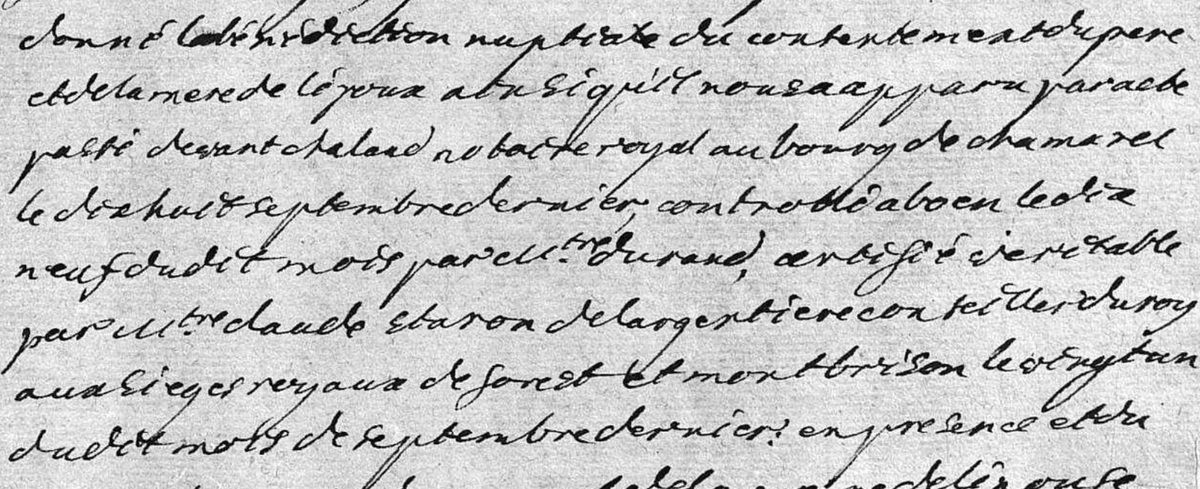 donné la bénédiction nuptiale du contentement du pere
et de la mere de l'époux ainsi qu'il nous a apparu par acte
passé devant chaland notaire royal au bourg de chamarel
le dix huit septembre dernier, controllé a boen le dix
neuf dudit mois par Mtre durand, certifié veritable
par Mtre claude staron de largentiere conseiller du roy
aux sieges royaux de forest et montbrison le vingt un
dudit mois de septembre dernier: en presence et du